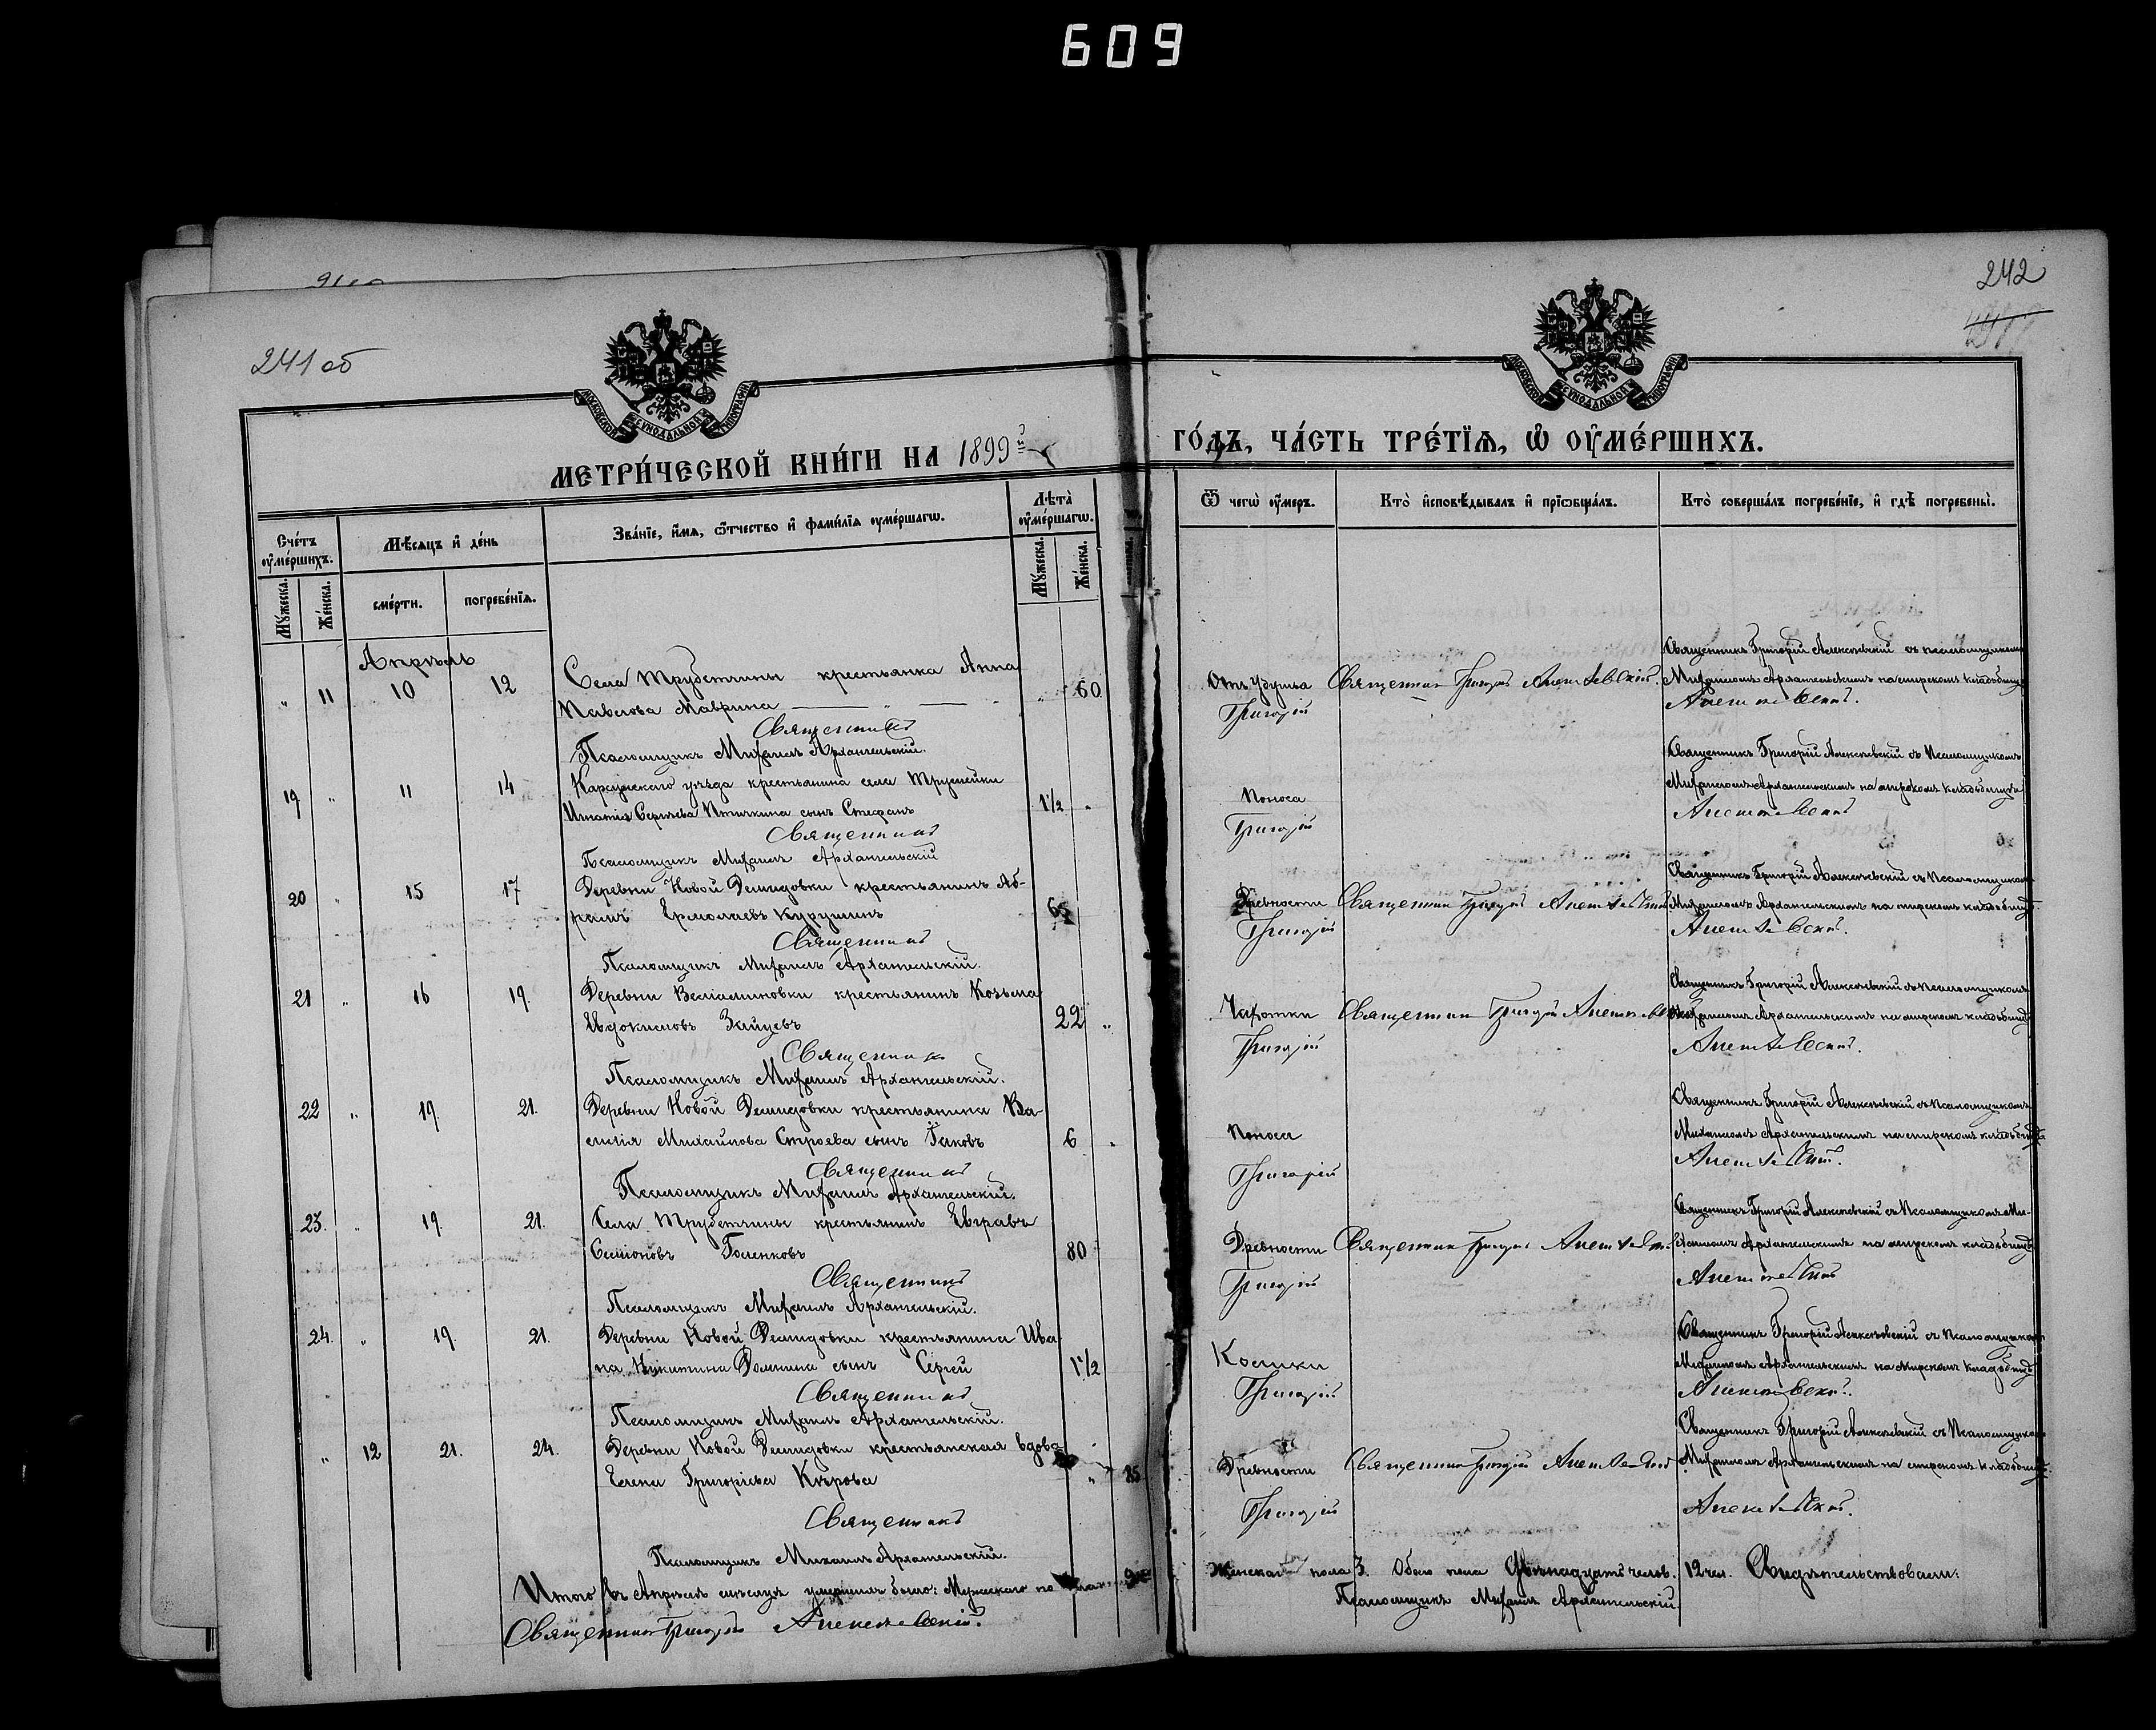 609
241 об
242
МОСКОВСКОЙ СУНОДАЛЬНОЙ ТИПОГРАФІИ
МОСКОВСКОЙ СУНОДАЛЬНОЙ ТИПОГРАФІИ
МЕТРИ́ЧЕСКОЙ КНИ́ГИ НА 1899й ГО́ДЪ, ЧА́СТЬ ТРЕ́ТІѦ, Ѡ҆ ОУ҆МЕ́РШИХЪ.
Сче́тъ оу҆ме́ршихъ.
Мꙋ́жеска.
Же́нска.
Мѣ́сѧцъ и҆ де́нь
сме́рти.
погребе́нїѧ.
Зва́нїе, и҆́мѧ, ѻ҆́тчество и҆ фами́лїѧ оу҆ме́ршагѡ.
Лѣ̑та̀ оу҆ме́ршагѡ.
Мꙋ́жеска.
Же́нска.
Ѿ чегѡ̀ оу҆́меръ.
Кто̀ и҆сповѣ́дывалъ и҆ прїѡбща́лъ.
Кто̀ соверша́лъ погребе́нїе, и҆ гдѣ̀ погребены̀.
Апрѣль
„ 11 10 12 Села Трубетчины крестьянка Анна „ 60
Павлова Маврина
Священникъ
Псаломщикъ Михаилъ Архангельскій.
Отъ удушья
Григорій
Священник Григорій Алексѣевскій.
Священникъ Григорій Алексѣевскій съ псаломщикомъ
Михаиломъ Архангельскимъ на мірскомъ кладбищѣ
Алексѣевскій.
19 „ 11 14 Карсунскаго уѣзда крестьянина села Трусл​ейки 1 1/2 „
Игнатія Сергѣева Птичкина сынъ Стефанъ
Священникъ
Псаломщикъ Михаилъ Архангельскій
Поноса
Григорій
Священникъ Григорій Алексѣевскій съ Псаломщикомъ
Михаиломъ Архангельскимъ на мірскомъ кладбищѣ
Алексѣевскій
20 „ 15 17 Деревни Новой Демидовки крестьянинъ Аб-
рамъ Ермолаевъ Курушинъ 65
Священникъ
Псаломщикъ Михаилъ Архангельскій.
Древности
Григорій
Священник Григорій Алексѣевскій.
Священникъ Григорій Алексѣевскій съ Псаломщикомъ
Михаиломъ Архангельскимъ на мірскомъ кладбищѣ.
Алексѣевскій.
21 „ 16 19. Деревни Веліаминовки крестьянинъ Козьма
Евдокимовъ Зайцевъ 22 „
Священник
Псаломщикъ Михаилъ Архангельскій.
Чахотки
Григорій
Священник Григорій Алексѣевскій
Священникъ Григорій Алексѣевскій съ псаломщикомъ
Михаиломъ Архангельскимъ на мірскомъ кладбищѣ
Алексѣевскій.
22 „ 19. 21. Деревни Новой Демидовки крестьянина Ва-
силія Михайлова Строева сынъ Іаковъ 6 „
Священникъ
Псаломщикъ Михаилъ Архангельскій.
Поноса
Григорій
Священникъ Григорій Алексѣевскій съ Псаломщикомъ
Михаиломъ Архангельскимъ на мірскомъ кладбищѣ
Алексѣевскій.
23. „ 19. 21. Села Трубетчины крестьянинъ Евграфъ
Семіоновъ Голенковъ 80
Священникъ
Псаломщикъ Михаилъ Архангельскій.
Древности
Григорій
Священник Григорій Алексѣевскій
Священникъ Григорій Алексѣевскій съ Псаломщикомъ Ми-
хаиломъ Архангельскимъ на мірскомъ кладбищѣ
Алексѣевскій
24. „ 19. 21. Деревни Новой Демидовки крестьянина Ива-
на Никитина Фомина сынъ Сергій 1 1/2
Священникъ
Псаломщикъ Михаилъ Архангельскій.
Кошки
Григорій
Священникъ Григорій Алексѣевскій съ Псаломщикомъ
Михаиломъ Архангельскимъ на мірскомъ кладбищѣ
Алексѣевскій.
„ 12 21. 24. Деревни Новой Демидовки крестьянская вдова
Елена Григоріева Кѣрова „ 85
Священникъ
Псаломщикъ Михаилъ Архангельскій.
Древности
Григорій
Священник Григорій Алексѣевскій
Священникъ Григорій Алексѣевскій съ Псаломщикомъ
Михаиломъ Архангельскимъ на мірскомъ кладбищѣ.
Алексѣевскій.
Итого въ Апрѣлѣ мѣсяцѣ умершихъ было: Мужескаго по
Женскаго пола 3. Обоего пола Двѣнадцать челов. 12 чел. Свидѣтельствовали:
Священник Григорій Алексѣевскій.
Псаломщикъ Михаилъ Архангельскій.